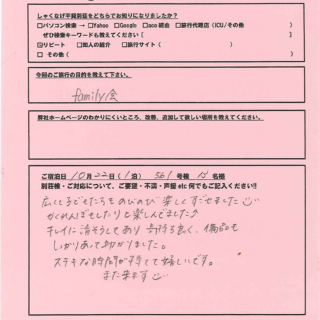 しゃくなげ平貸別荘をどちらでお知りになりましたか?
□パソコン検索 → □Yahoo □Google □aco 総合 □旅行代理店(ICU/その他 )
ぜひ検索キーワードも教えてください [ ]
☑リピート □知人の紹介 □旅行サイト( )
□その他( )
今回のご旅行の目的を教えて下さい。
family会
弊社ホームページのわかりにくいところ、改善、追加して欲しい場所を教えてください。
ご宿泊日 10月22日(1泊) 561号棟 名様
別荘様・ご対応について、ご要望・不満・声援 etc 何でもご記入ください!!
広くて子どもたちものびのび 楽しくすごせました
かくれんぼをしたりと楽しんでました♪
キレイに清そうしてあり 気持ち良く、備品も
しっかりあって助かりました。
ステキな時間が できて嬉しいです。
また来ます